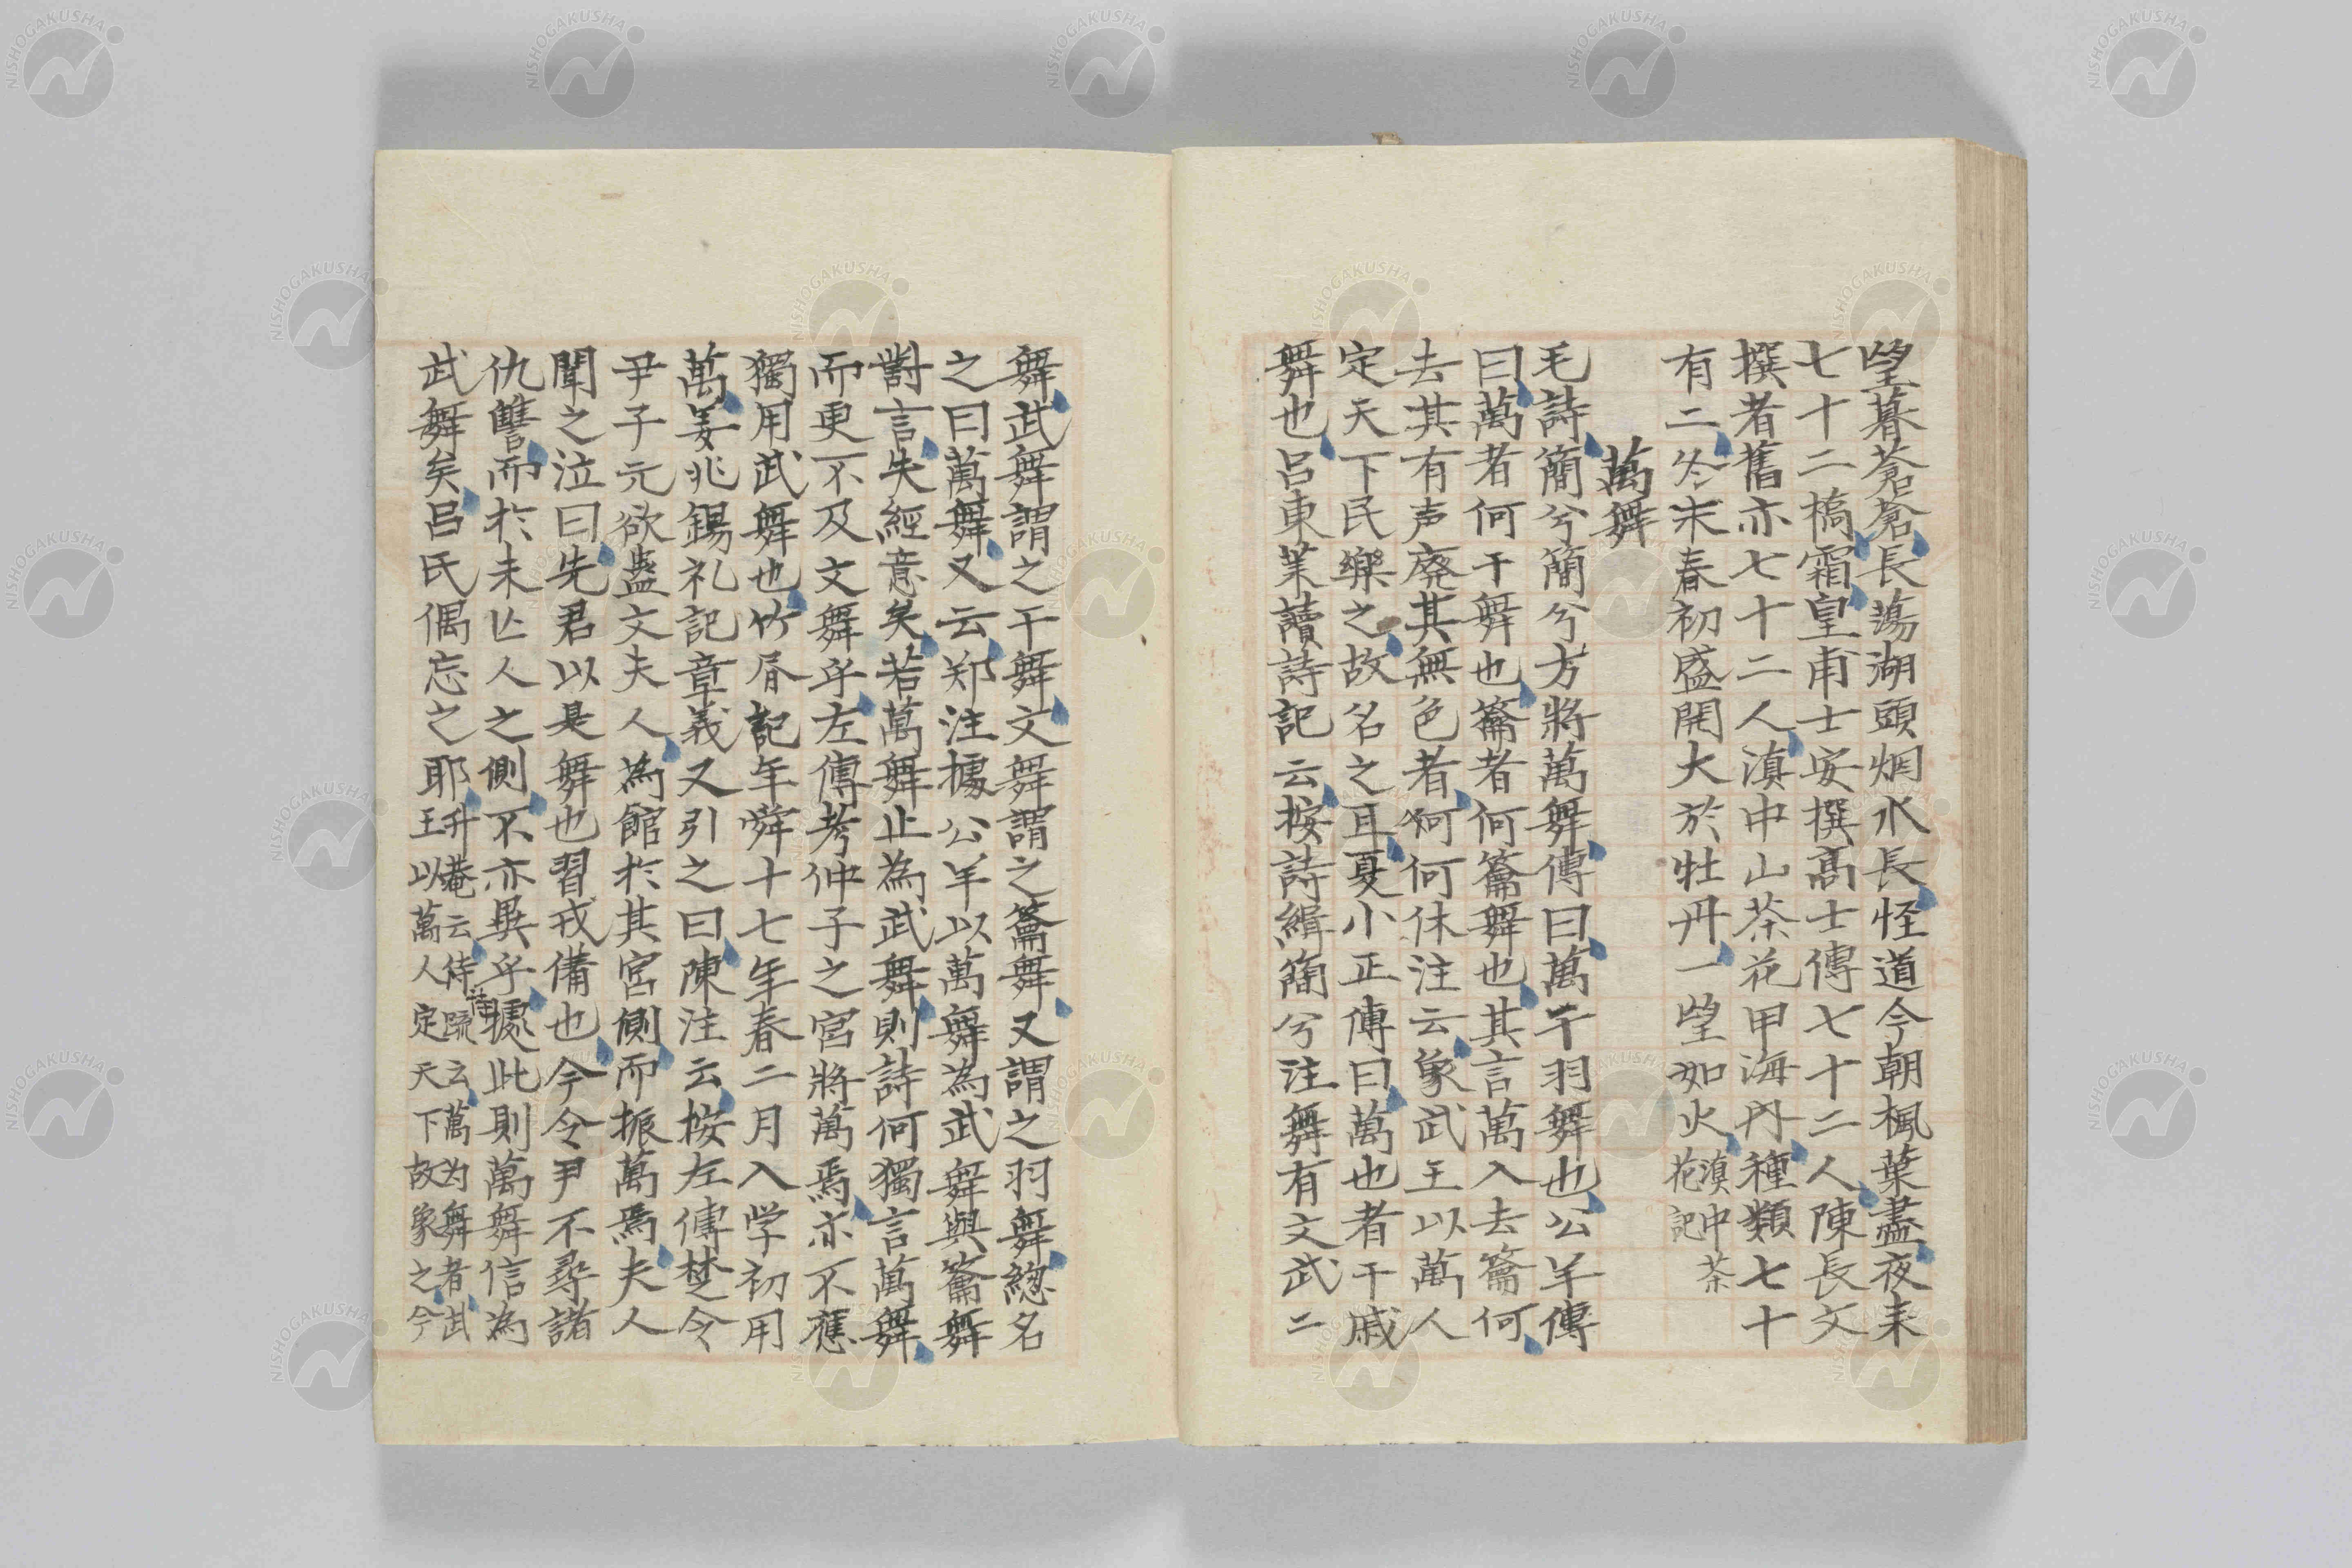 望暮蒼蒼長蕩湖頭烟水長怪道今朝楓葉盡夜来
七十二橋霜皇甫士安撰髙士傳七十二人陳長文
撰者舊亦七十二人滇中山茶花甲海内種類七十
有二冬末春初盛開大於牡丹一望如火滇中茶花記
萬舞
毛詩簡兮簡兮方將萬舞傳曰萬干羽舞也公羊傳
曰萬者何干舞也籥者何籥舞也其言萬入去籥何
去其有声廃其無色者何何休注云象武王以萬人
定天下民樂之故名之耳夏小正傳曰萬也者干戚
舞也吕東莱讀詩記云按詩緝簡兮注舞有文武二
舞武舞謂之干舞文舞謂之籥舞又謂之羽舞總名
之曰萬舞又云郑注據公羊以萬舞為武舞與籥舞
對言失經意矣若萬舞止為武舞則詩何獨言萬舞
而更不及文舞乎左傳考仲子之宮將萬焉亦不應
獨用武舞也竹房記年舜十七年春二月入学初用
萬姜兆錫礼記章義又引之曰陳注云按左傳楚令
尹子元欲蠱文夫人為館於其宮側而振萬焉夫人
聞之泣曰先君以是舞也習戎備也今令尹不尋諸
仇讐而於未亡人之側不亦異乎據此則萬舞信為
武舞矣吕氏偶忘之耶升菴云待詩疏云萬为舞者武
王以萬人定天下故象之今